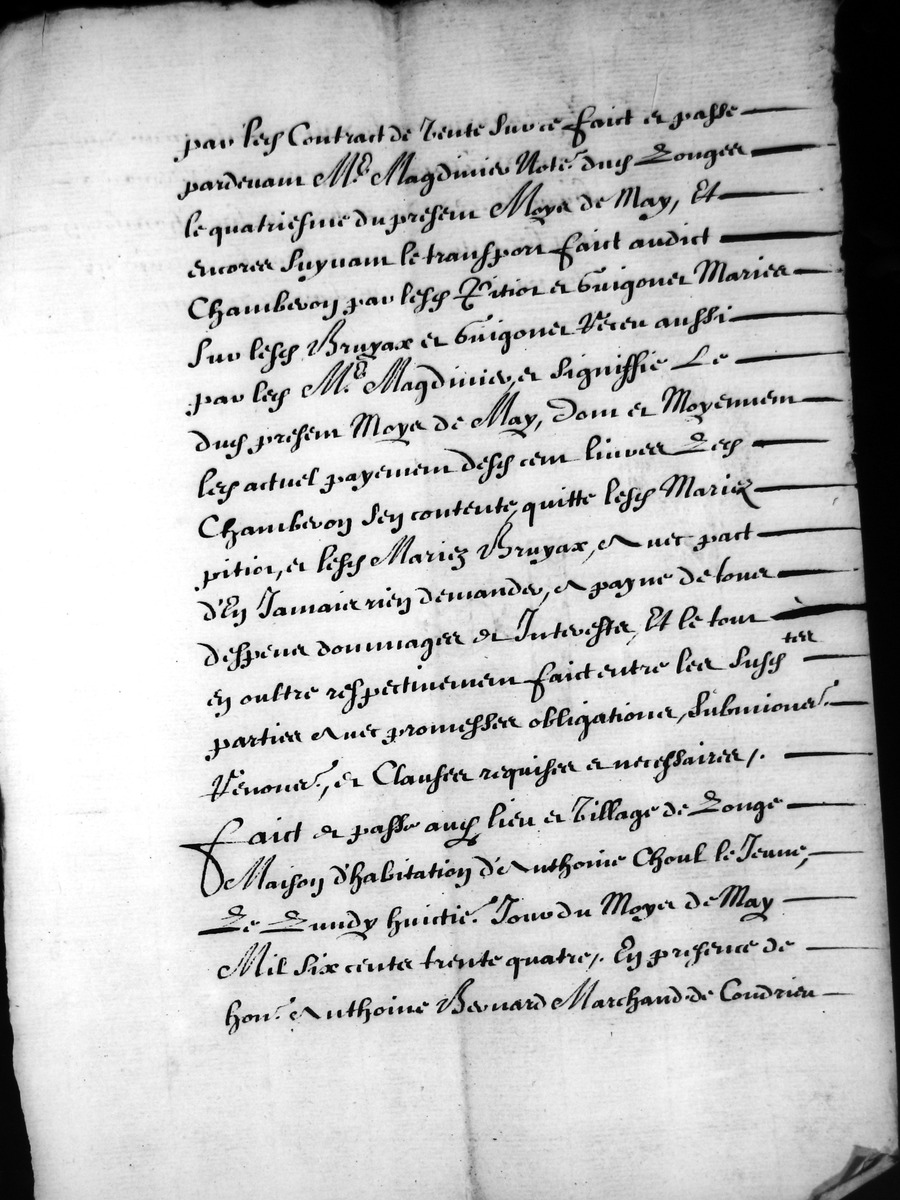 par led Contract de Vente sur ce faict et passe
pardevant Me. Magdinier Note. dud Longes
le quatriesme du present Moys de May, Et
encores suyvant le transport faict audict
Chambeyron par lesd Pitiot et Guigonet Maries
sur lesd Bruyax et Guigonet Receu aussi
par led Me. Magdinier, et signiffie Le
dud present Moys de May, Dont et Moyennent
led actuel payement desd cent livres Led
Chambeyron s'en contente, quitte lesd Mariez
pitiot, et lesd Mariez Bruyax, Avec pact
d'En Jamais rien demander, A payne de tous
despens dommages et Interests, Et le tout
en oultre respectivement faict entre les susd tes
parties Avec promesses obligations, submions.
Renons., et Clauses requises et necessaires /.
Faict et passe aud lieu et Village de Longe
Maison d'habitation d'Anthoine Choul le Jeune,
Le Lundy huictie. Jour du Moys de May
Mil six cents trente quatre /. En presence de
hon. Anthoine Bernard Marchand de Condrieu